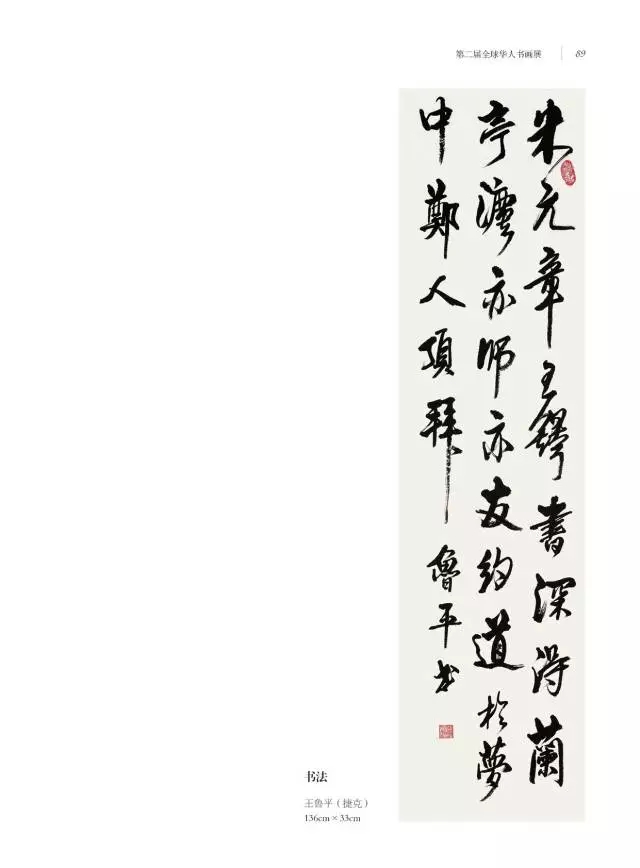 第二届全球华人书画展 89
米元章王鐸書深得蘭
亭灋亦師亦友約道於夢
中鄭人頂拜 魯平书
书法
王鲁平（捷克）
136cm×33cm